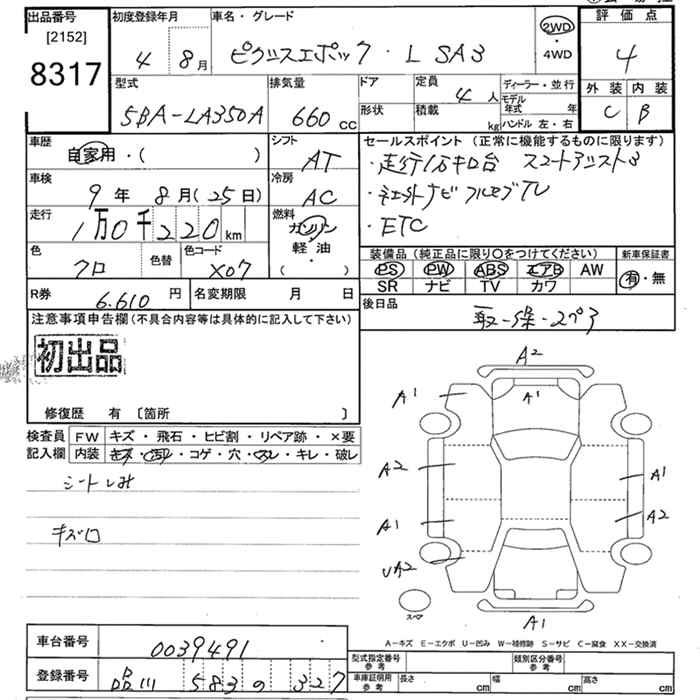 出品番号
[2152]
8317
初度登録年月
4 8月
車名・グレード
ピクシスエポック・L SA3
2WD
・
4WD
評価点
4
外装 内装
C B
型式
5BA-LA350A
排気量
660 cc
ドア
形状
定員
4 人
積載
kg
ディーラー・並行
モデル
年式 年
ハンドル 左・右
車歴
自家用・( )
シフト
AT
車検
9年 8月(25日)
冷房
AC
走行
1万0千220km
燃料
ガソリン
軽油
( )
色
クロ
色替
色コード
X07
R券
6.610 円
名変期限 月 日
セールスポイント(正常に機能するものに限ります)
・走行1万キロ台 スマートアシスト3
・ナビ フルセグTV
・ETC
装備品(純正品に限り○をつけてください)
PS PW ABS エアB AW
SR ナビ TV カワ
新車保証書
有・無
後日品
注意事項申告欄(不具合内容等は具体的に記入して下さい)
初出品
修復歴 有 〔箇所 〕
検査員
記入欄
FW キズ・飛石・ヒビ割・リペア跡・×要
内装 キズ・汚レ・コゲ・穴・スレ・キレ・破レ
シートしみ
キズ
A2
A1
A1
A2
A1
A1
A2
UA2
A1
スペア
A-キズ E-エクボ U-凹み W-補修跡 S-サビ C-腐食 XX-交換済
車台番号
0039491
登録番号
品川 583 の 327
型式指定番号
参考
類別区分番号
参考
車庫証明用
参考
長さ cm 幅 cm 高さ cm